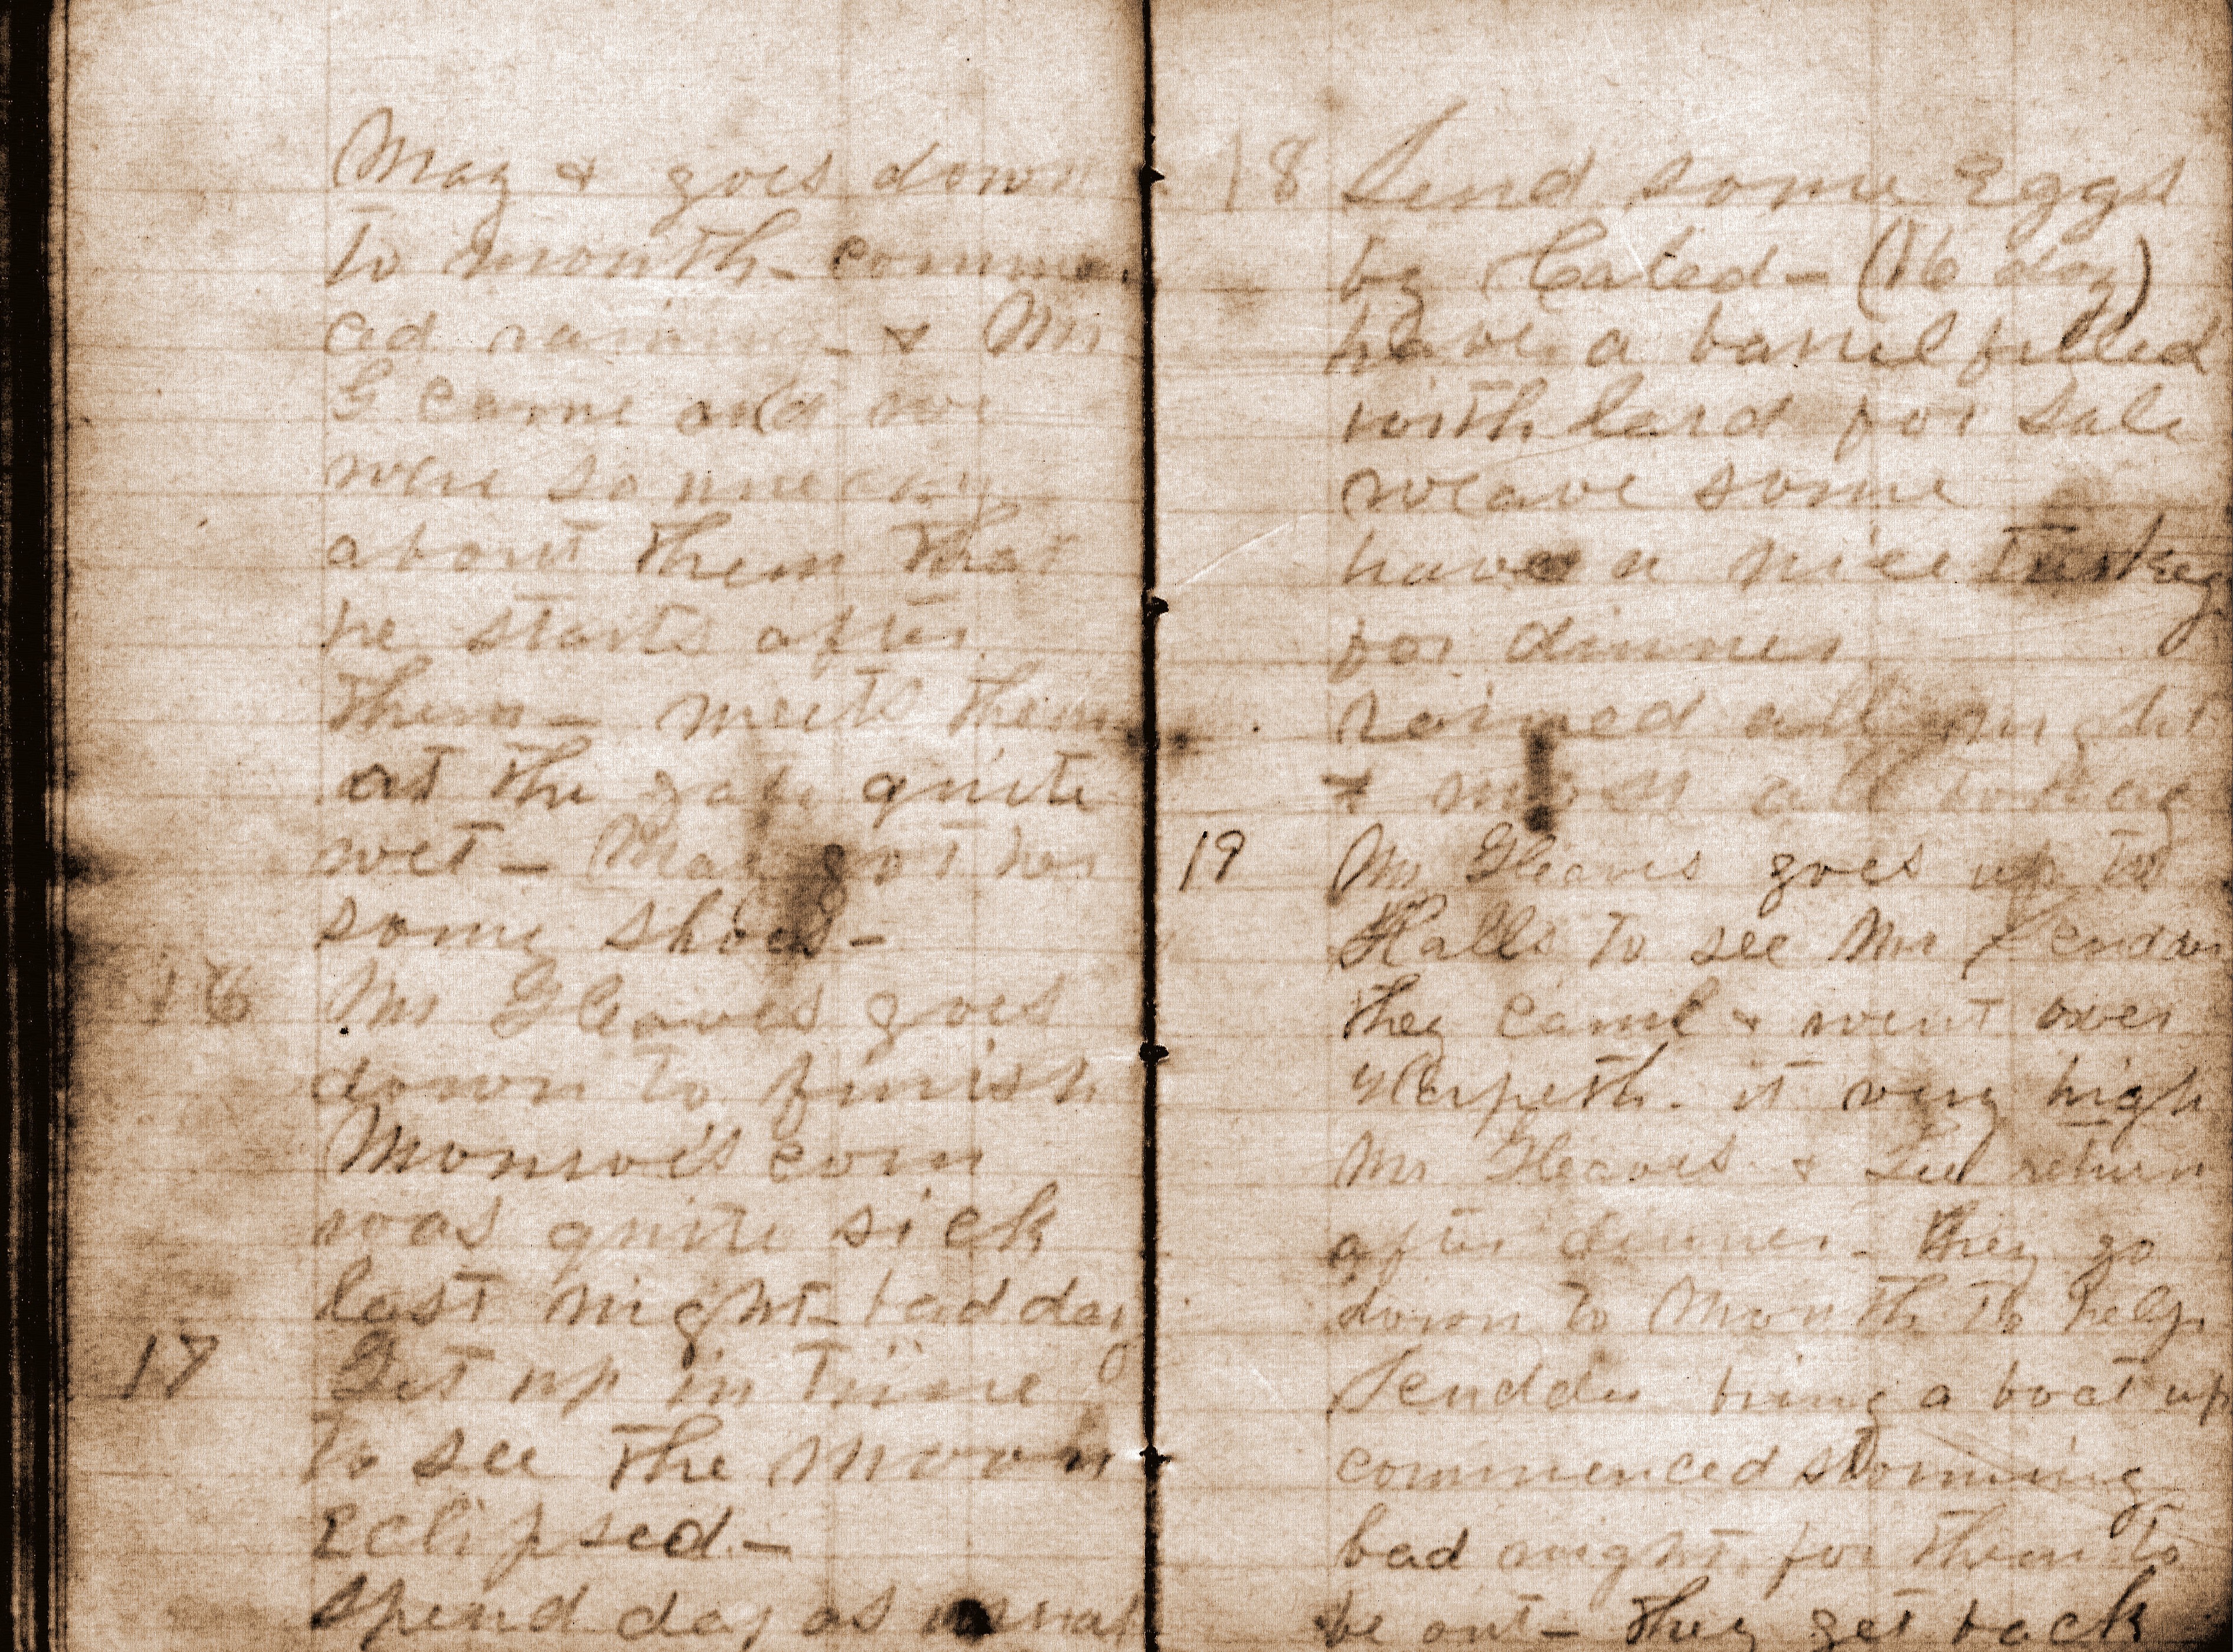 May & goes down
to mouth - commenc
ed raining - & Mr
G came and we
were so uneasy
about them that
he starts after
them - meets them
at the gate quite
wet - May got her
some shoes -
16 Mr Gleaves goes
down to finish
Monroe's corn
was quite sick
last night - bad day
17 Get up in time
to see the moon
Eclipsed -
spend day as usual
18 Send some Eggs
by - (16 doz)
have a barrel filled
with lard for sale
weave some
have a nice turkey
for dinner
rained all night
& most all today
19 Mr Gleaves goes up to
Halls to see Mr
they came & went over
Harpeth. it very high
Mr Gleaves & return
after dinner - they go
down to Mouth to help
bring a boat up
commenced storming
bad night for them to
be out - they get back